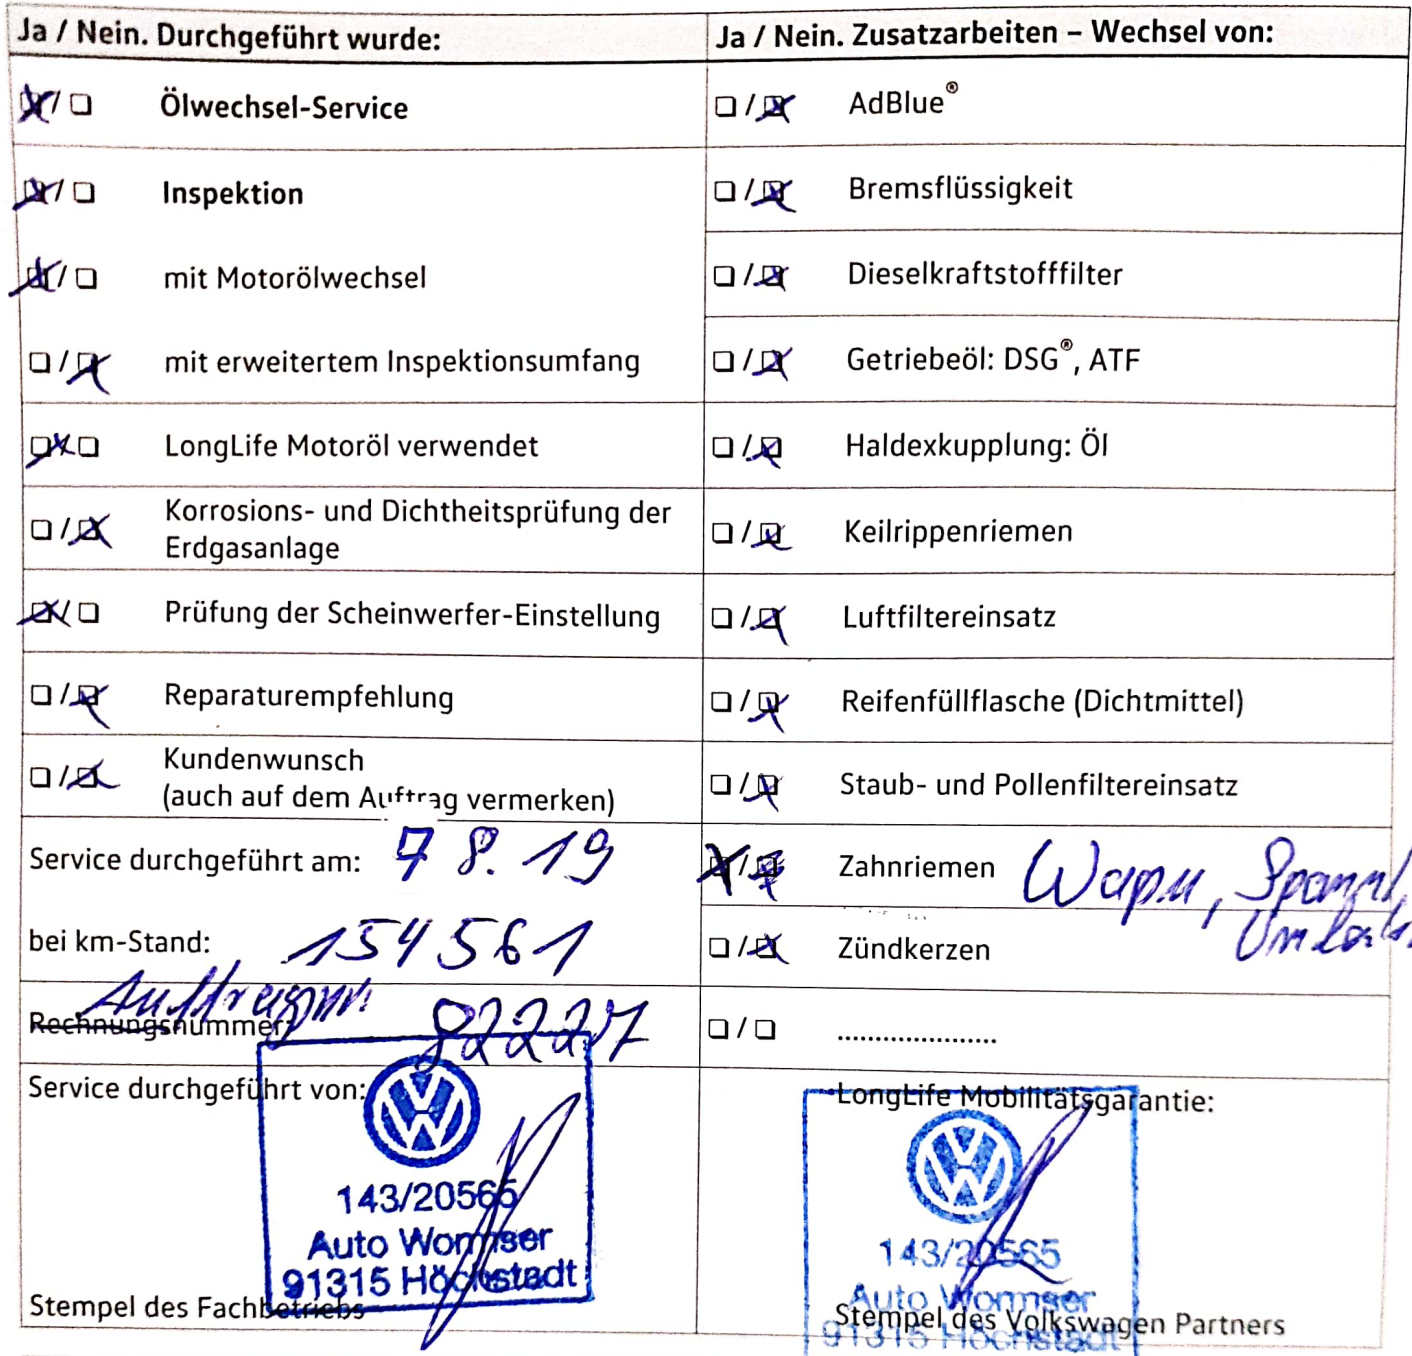 Ja / Nein. Durchgeführt wurde:
Ölwechsel-Service
Inspektion
mit Motorölwechsel
mit erweitertem Inspektionsumfang
LongLife Motoröl verwendet
Korrosions- und Dichtheitsprüfung der
Erdgasanlage
Prüfung der Scheinwerfer-Einstellung
Reparaturempfehlung
Kundenwunsch
(auch auf dem Auftrag vermerken)
Service durchgeführt am: 7 8. 19
bei km-Stand: 154561
Auftragsnr.
Rechnungsnummer: 82227
Service durchgeführt von:
143/20565
Auto Wormser
91315 Höchstadt
Stempel des Fachbetriebs
Ja / Nein. Zusatzarbeiten – Wechsel von:
AdBlue®
Bremsflüssigkeit
Dieselkraftstofffilter
Getriebeöl: DSG®, ATF
Haldexkupplung: Öl
Keilrippenriemen
Luftfiltereinsatz
Reifenfüllflasche (Dichtmittel)
Staub- und Pollenfiltereinsatz
Zahnriemen Wapu,
Zündkerzen
....................
LongLife Mobilitätsgarantie:
143/20565
Auto Wormser
91315 Höchstadt
Stempel des Volkswagen Partners